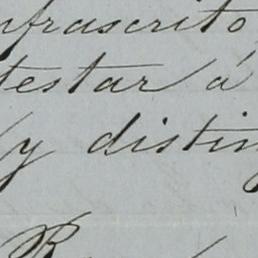 nfrascrito
testar á
y distin
R